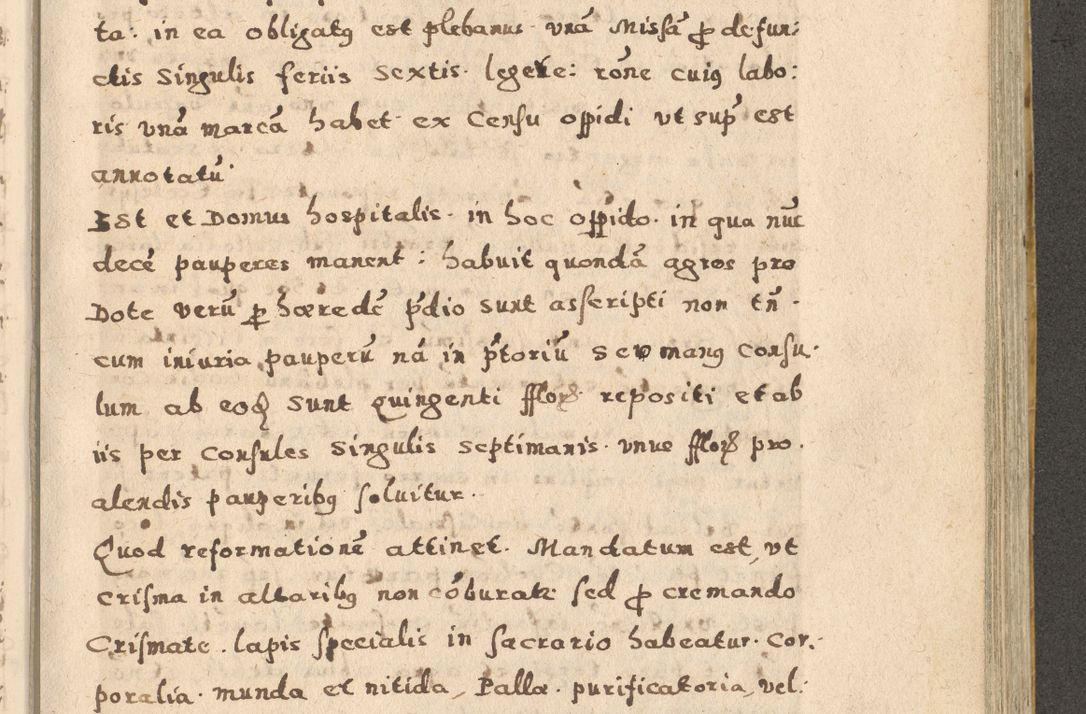 ta: in ea obligatꝰ est plebanus unā Missā ꝓ defun:
ctis Singulis feriis Sextis legere: rōne cuiꝰ labo:
ris unā marcā habet ex Censu oppidi ut sup̄ est
annotatū.
Est et Domus hospitalis in hoc oppido. in qua nūc
decē pauperes manent: habuit quondā agros pro
Dote verū ꝑ hæredē p̄dio sunt asscripti non tn̄.
cum iniuria pauperū nā in p̄toriū seu manꝰ Consu:
lum ab eoꝗ sunt quingenti fflor. repositi et ab
iis per Consules Singulis Septimanis. unus fflor. pro.
alendis pauperibꝰ soluitur.
Quod reformationē attinet. Mandatum est, ut
Crisma in altaribꝰ non cōburat sed ꝓ cremando
Crismate. lapis specialis in sacrario habeatur. Cor:
poralia. munda et nitida, Pallæ. purificatoria, vel: